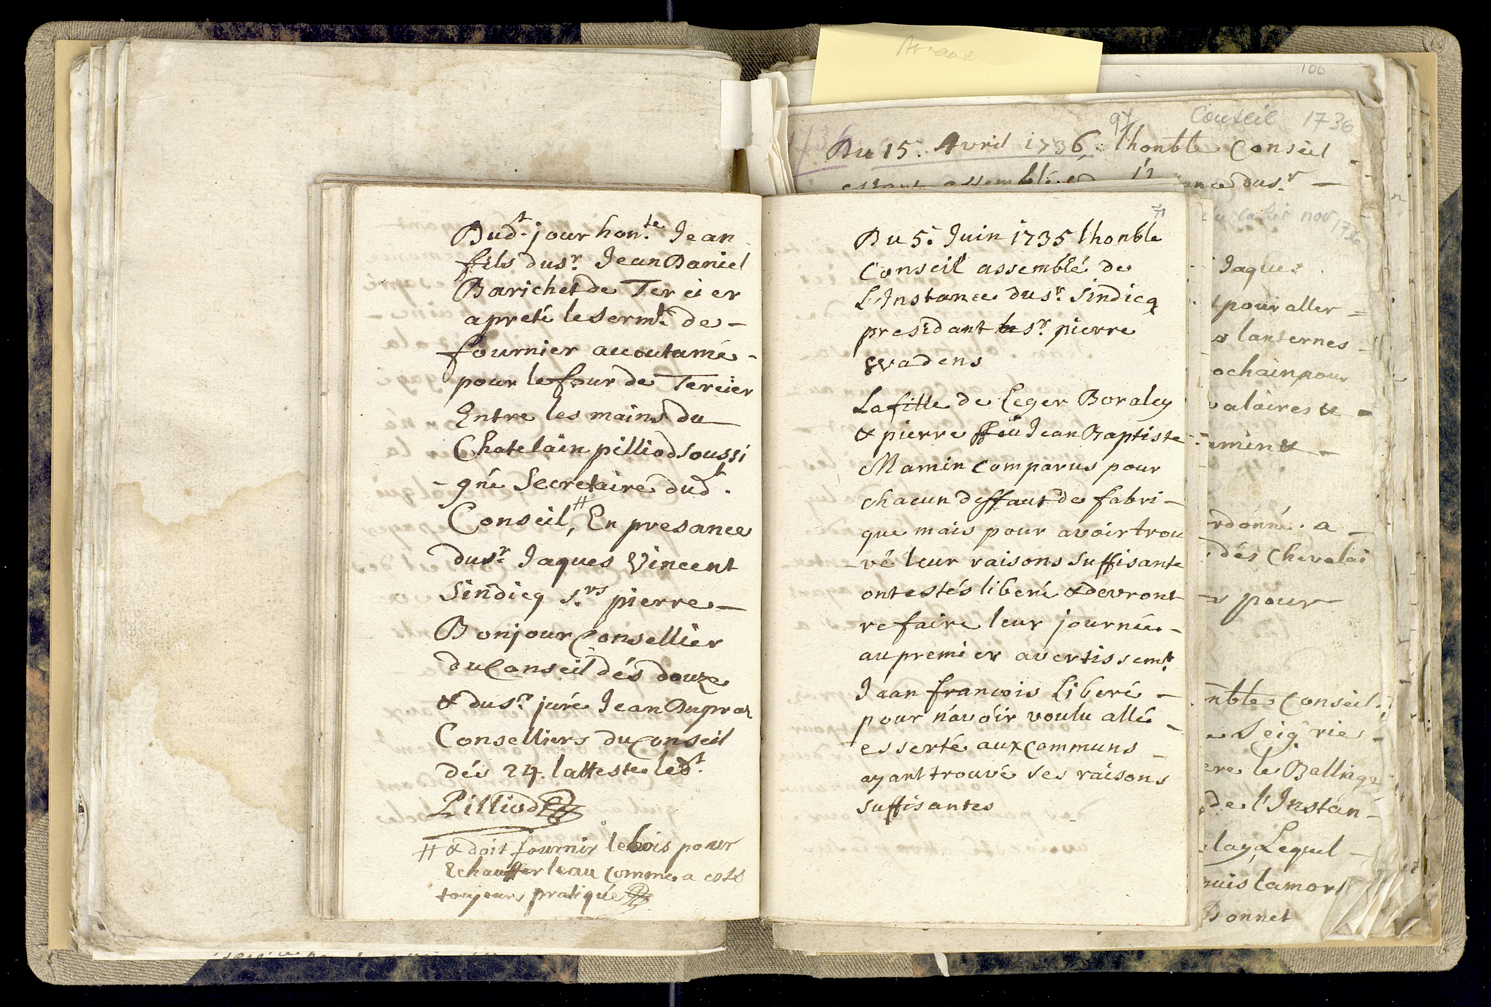 Dud.t jour hon.te Jean
fils du sr. Jean Daniel
Barichet de Tercier
a preté le serm.t de -
fournier accoutumé -
pour le four de Tercier
Entre les mains du
Chatelain pilliod soussi
- gné Secretaire dud.t
Conseil, # En presance
du sr. Jaques Vincent
Sindicq s.rs pierre -
Bonjour Consellier
du Conseil dés douze
& du sr. juré Jean Dupraz
Conselliers du Conseil
dés 24. l'atteste led.t
Pilliod
# & doit fournir le bois pour
Echauffer leau comme a esté
toujours pratiqué
Du 5. Juin 1735 lhonble
Conseil assemblé de
L'Instance du sr. Sindicq
presidant le sr. pierre
Wadens
La fille de Leger Boraley
& pierre ffeu Jean Baptiste
Mamin comparus pour
chacun deffaut de fabri -
que mais pour avoir trou
- vé leur raisons suffisante
ont estés liberé & devront
refaire leur journée -
au premier avertissem.t
Jaan francois Liberé -
pour n'avoir voulu allé -
esserté aux communs -
ayant trouvé ses raisons
suffisantes
Avaux
106
97
Conseil 1736
Du 15. Avril 1736. lhonble Conseil
nov 1736
Jaques
pour aller -
lanternes -
ochain pour
valaires & -
ordonné. a -
dés Chevalai
pour
onble Conseil
Seig.rie -
ere le Ballingi
de l'Instan -
lay, Lequel -
puis la mort
Bonnet